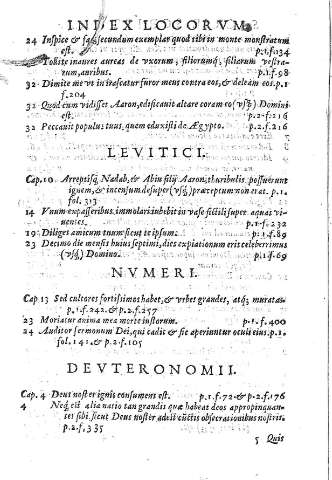 INDEX LOCORVM.
24 Inspice & fac secundum exemplar quod tibi in monte monstratum
est. p.1.f.134
Tollite inaures aureas de vxorum, filiorumq́, filiarum vestra-
rum, auribus. p.1.f.98
32 Dimite me vt irascatur furor meus contra eos, & deleam eos. p.1
f.204
32 Quod cum vidisset Aaron, edificauit altare coram eo (vsq́;) Domini
est. p.2.f.216
32 Peccauit populus tuus, quem eduxisti de Ægypto. p.2.f.216
LEVITICI.
Cap.10 Arreptisq́; Nadab, & Abiu filij Aaron, thuribulis posuerunt
ignem, & incensum desuper (vsq́;) præceptum non erat. p.1.
fol. 313
14 Vnum ex passeribus immolari iubebit in vase fictili super aquas vi-
uentes. p.1.f.232
19 Diliges amicum tuum sicut te ipsum. p.1.f.89
23 Decimo die mensis huius septimi, dies expiationum erit celeberrimus
(vsq́;) Domino. p.1.f.69
NVMERI.
Cap.13 Sed cultores fortissimos habet, & vrbes grandes, atq́; muratas.
p.1.f.242. & p.2.f.257
23 Moriatur anima mea morte iustorum. p.1.f.400
24 Auditor sermonum Dei, qui cadit & sic aperiuntur oculi eius. p.1.
fol. 141. & p.2.f.105
DEVTERONOMII.
Cap. 4 Deus noster ignis consumens est. p.1.f.72. & p.2.f.176
4 Neq́; est alia natio tan grandis quæ habeat deos appropinquan-
tes sibi, sicut Deus noster adest cũctis obsecrationibus nostris.
p.2.f.335
5 Quis